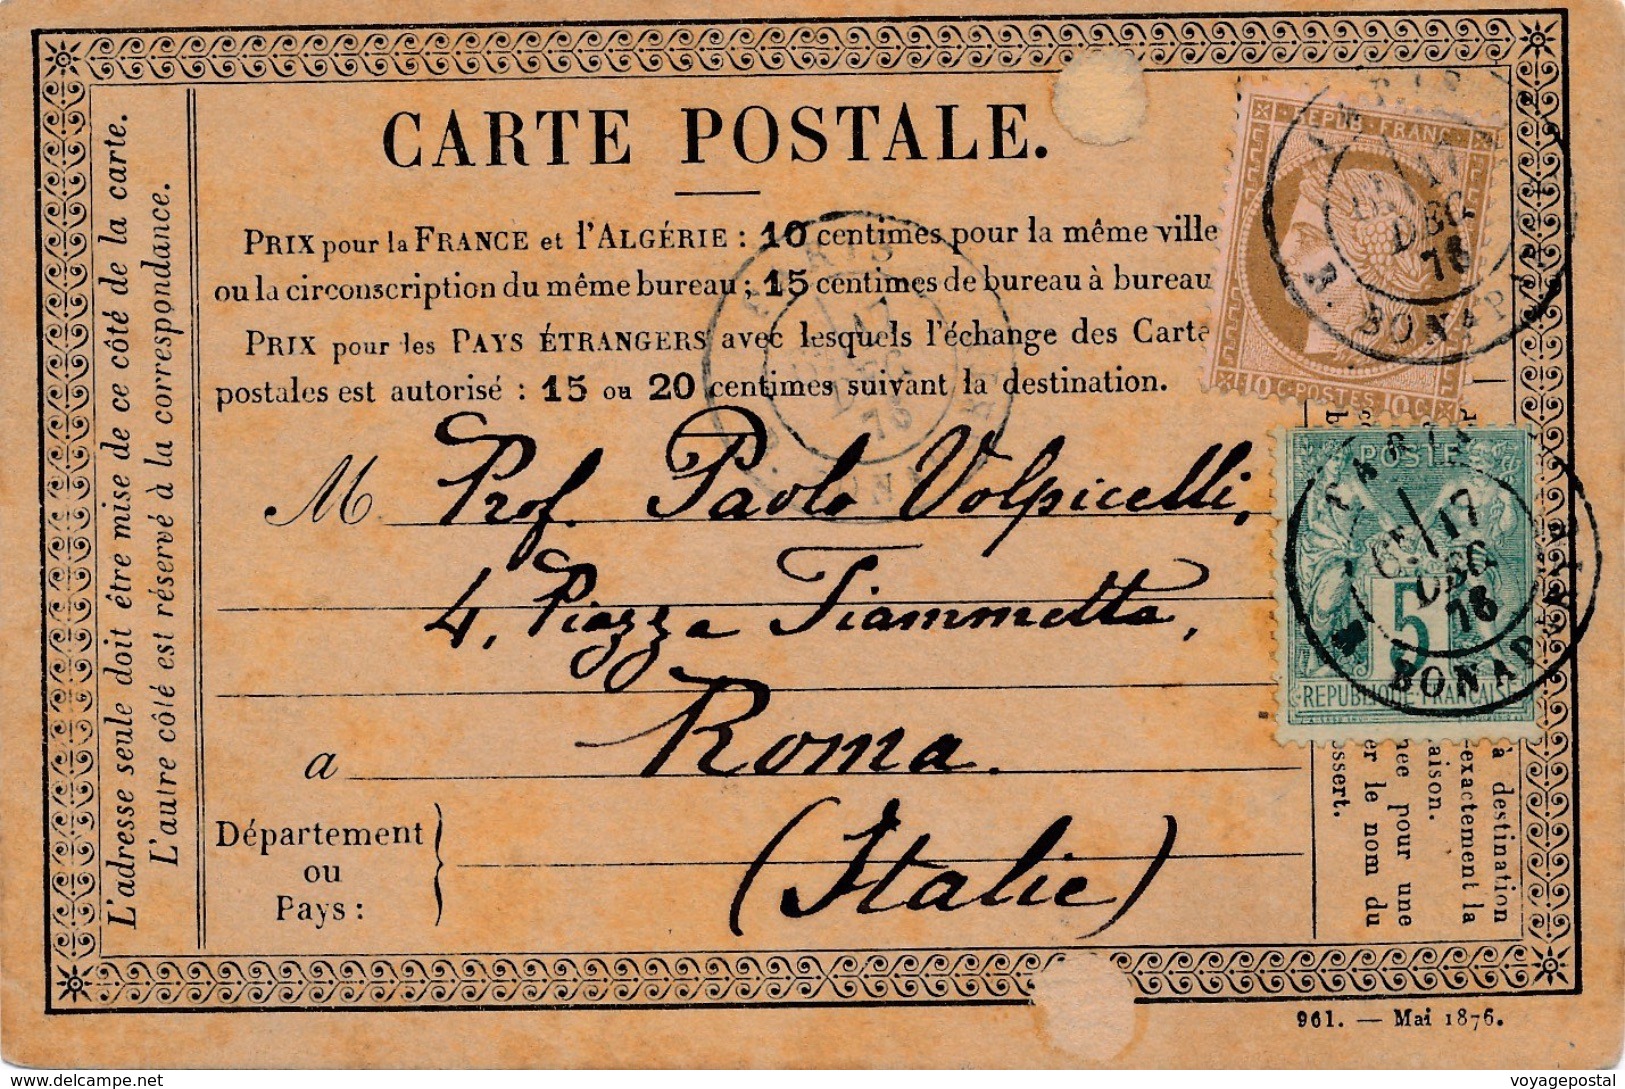 CARTE POSTALE.
PRIX pour la FRANCE et l'ALGÉRIE : 10 centimes pour la même ville
ou la circonscription du même bureau ; 15 centimes de bureau à bureau
PRIX pour les PAYS ÉTRANGERS avec lesquels l'échange des Carte
postales est autorisé : 15 ou 20 centimes suivant la destination.
M Prof. Paolo Volpicelli,
4, Piazza Fiammetta,
a Roma.
Département
ou
Pays :
(Italie)
L'adresse seule doit être mise de ce côté de la carte.
L'autre côté est réservé à la correspondance.
REPUB. FRANC.
10 C. POSTES 10 C.
PARIS
17
DEC
76
R. BONAPARTE
POSTES
5
REPUBLIQUE FRANÇAISE
PARIS
17
DEC
76
R. BONAPARTE
PARIS
17
DEC
76
R. BONAPARTE
à destination
exactement la
aison.
née pour une
er le nom du
ssert.
961. — Mai 1876.
www.delcampe.net
voyagepostal